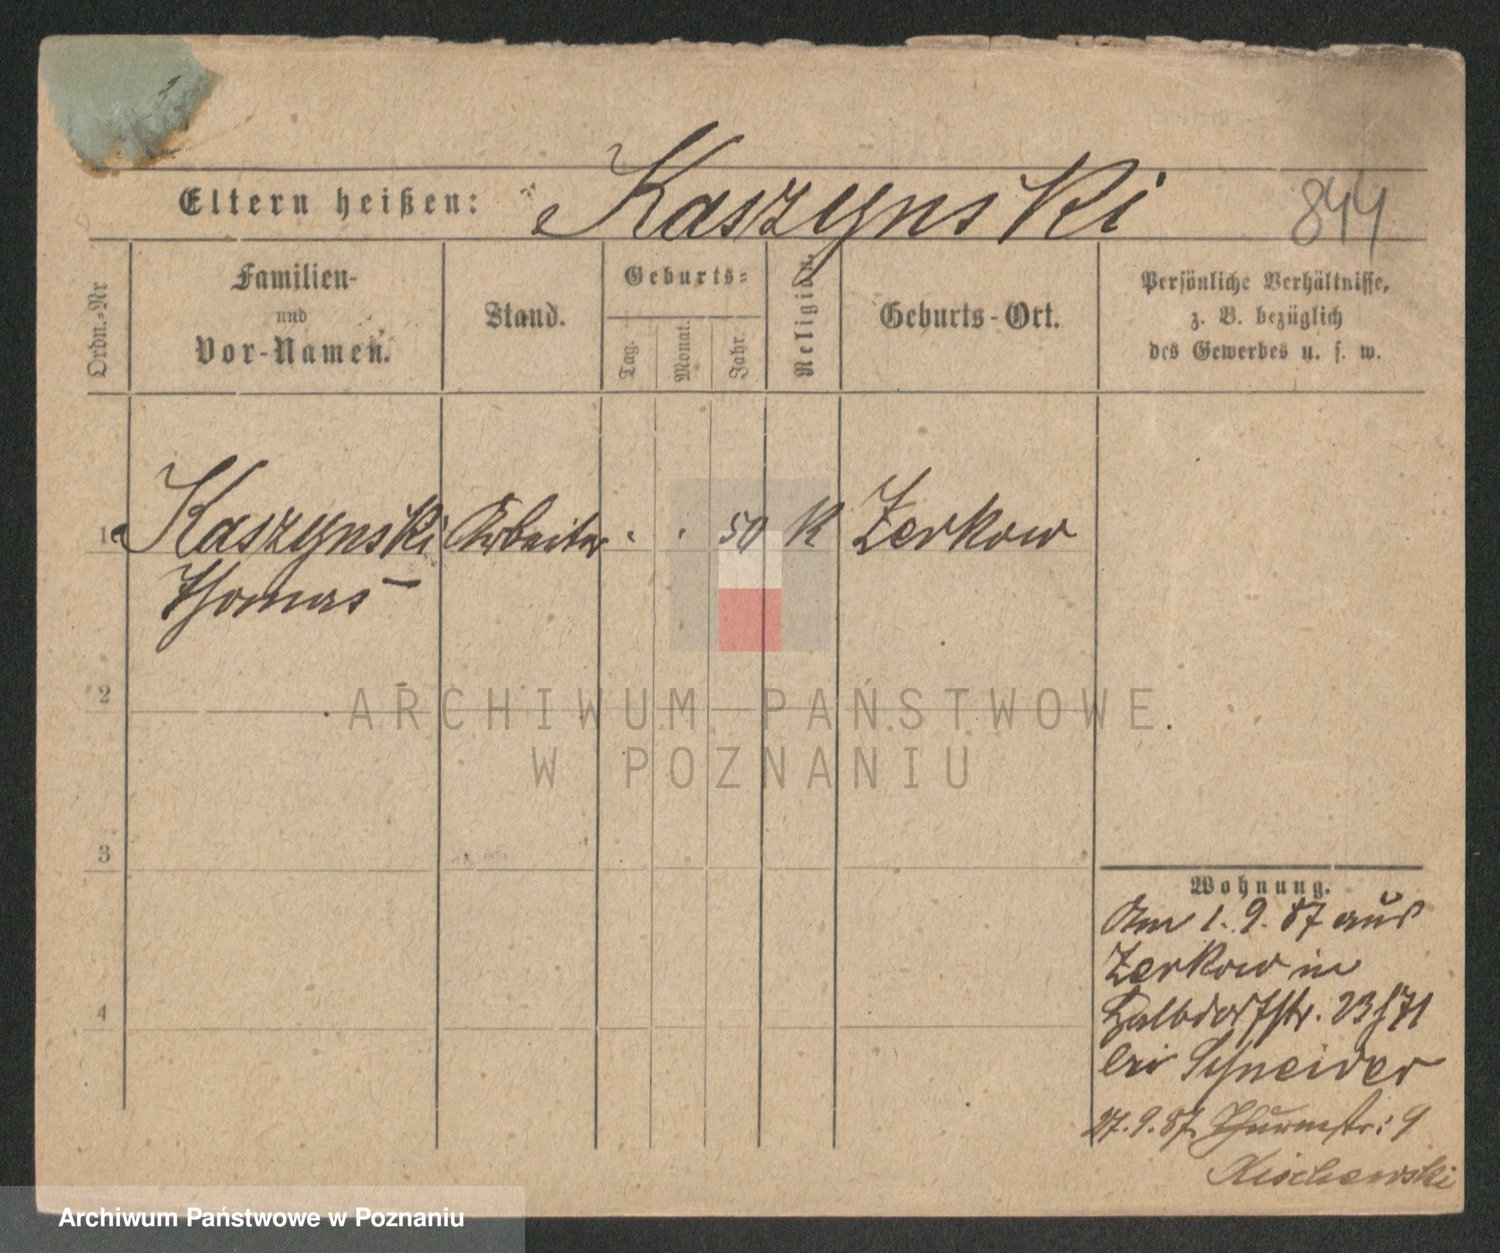 Eltern heißen: Kaszynski 844
Ordn.-Nr
Familien-
und
Vor-Namen.
Stand.
Geburts-
Tag.
Monat.
Jahr.
Religion.
Geburts-Ort.
Persönliche Verhältnisse,
z. B. bezüglich
des Gewerbes u. s. w.
1 Kaszynski Arbeiter " " 50 K Zerkow
Thomas
2
3
4
Wohnung.
Am 1. 9. 87 aus
Zerkow in
Halbdorfstr. 23
bei Schneider
27. 9. 87 Thurmstr: 9
Kischewski
ARCHIWUM PAŃSTWOWE
W POZNANIU
Archiwum Państwowe w Poznaniu